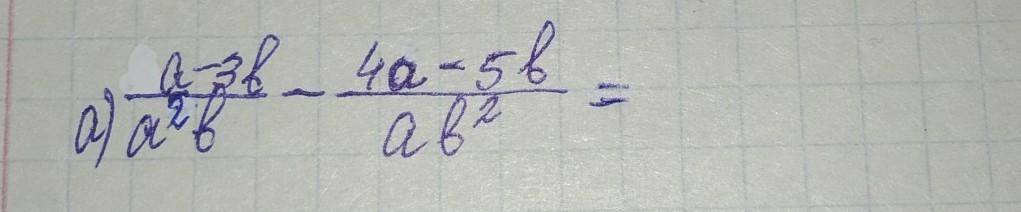 а) (a-3b)/(a²b) - (4a-5b)/(ab²) =